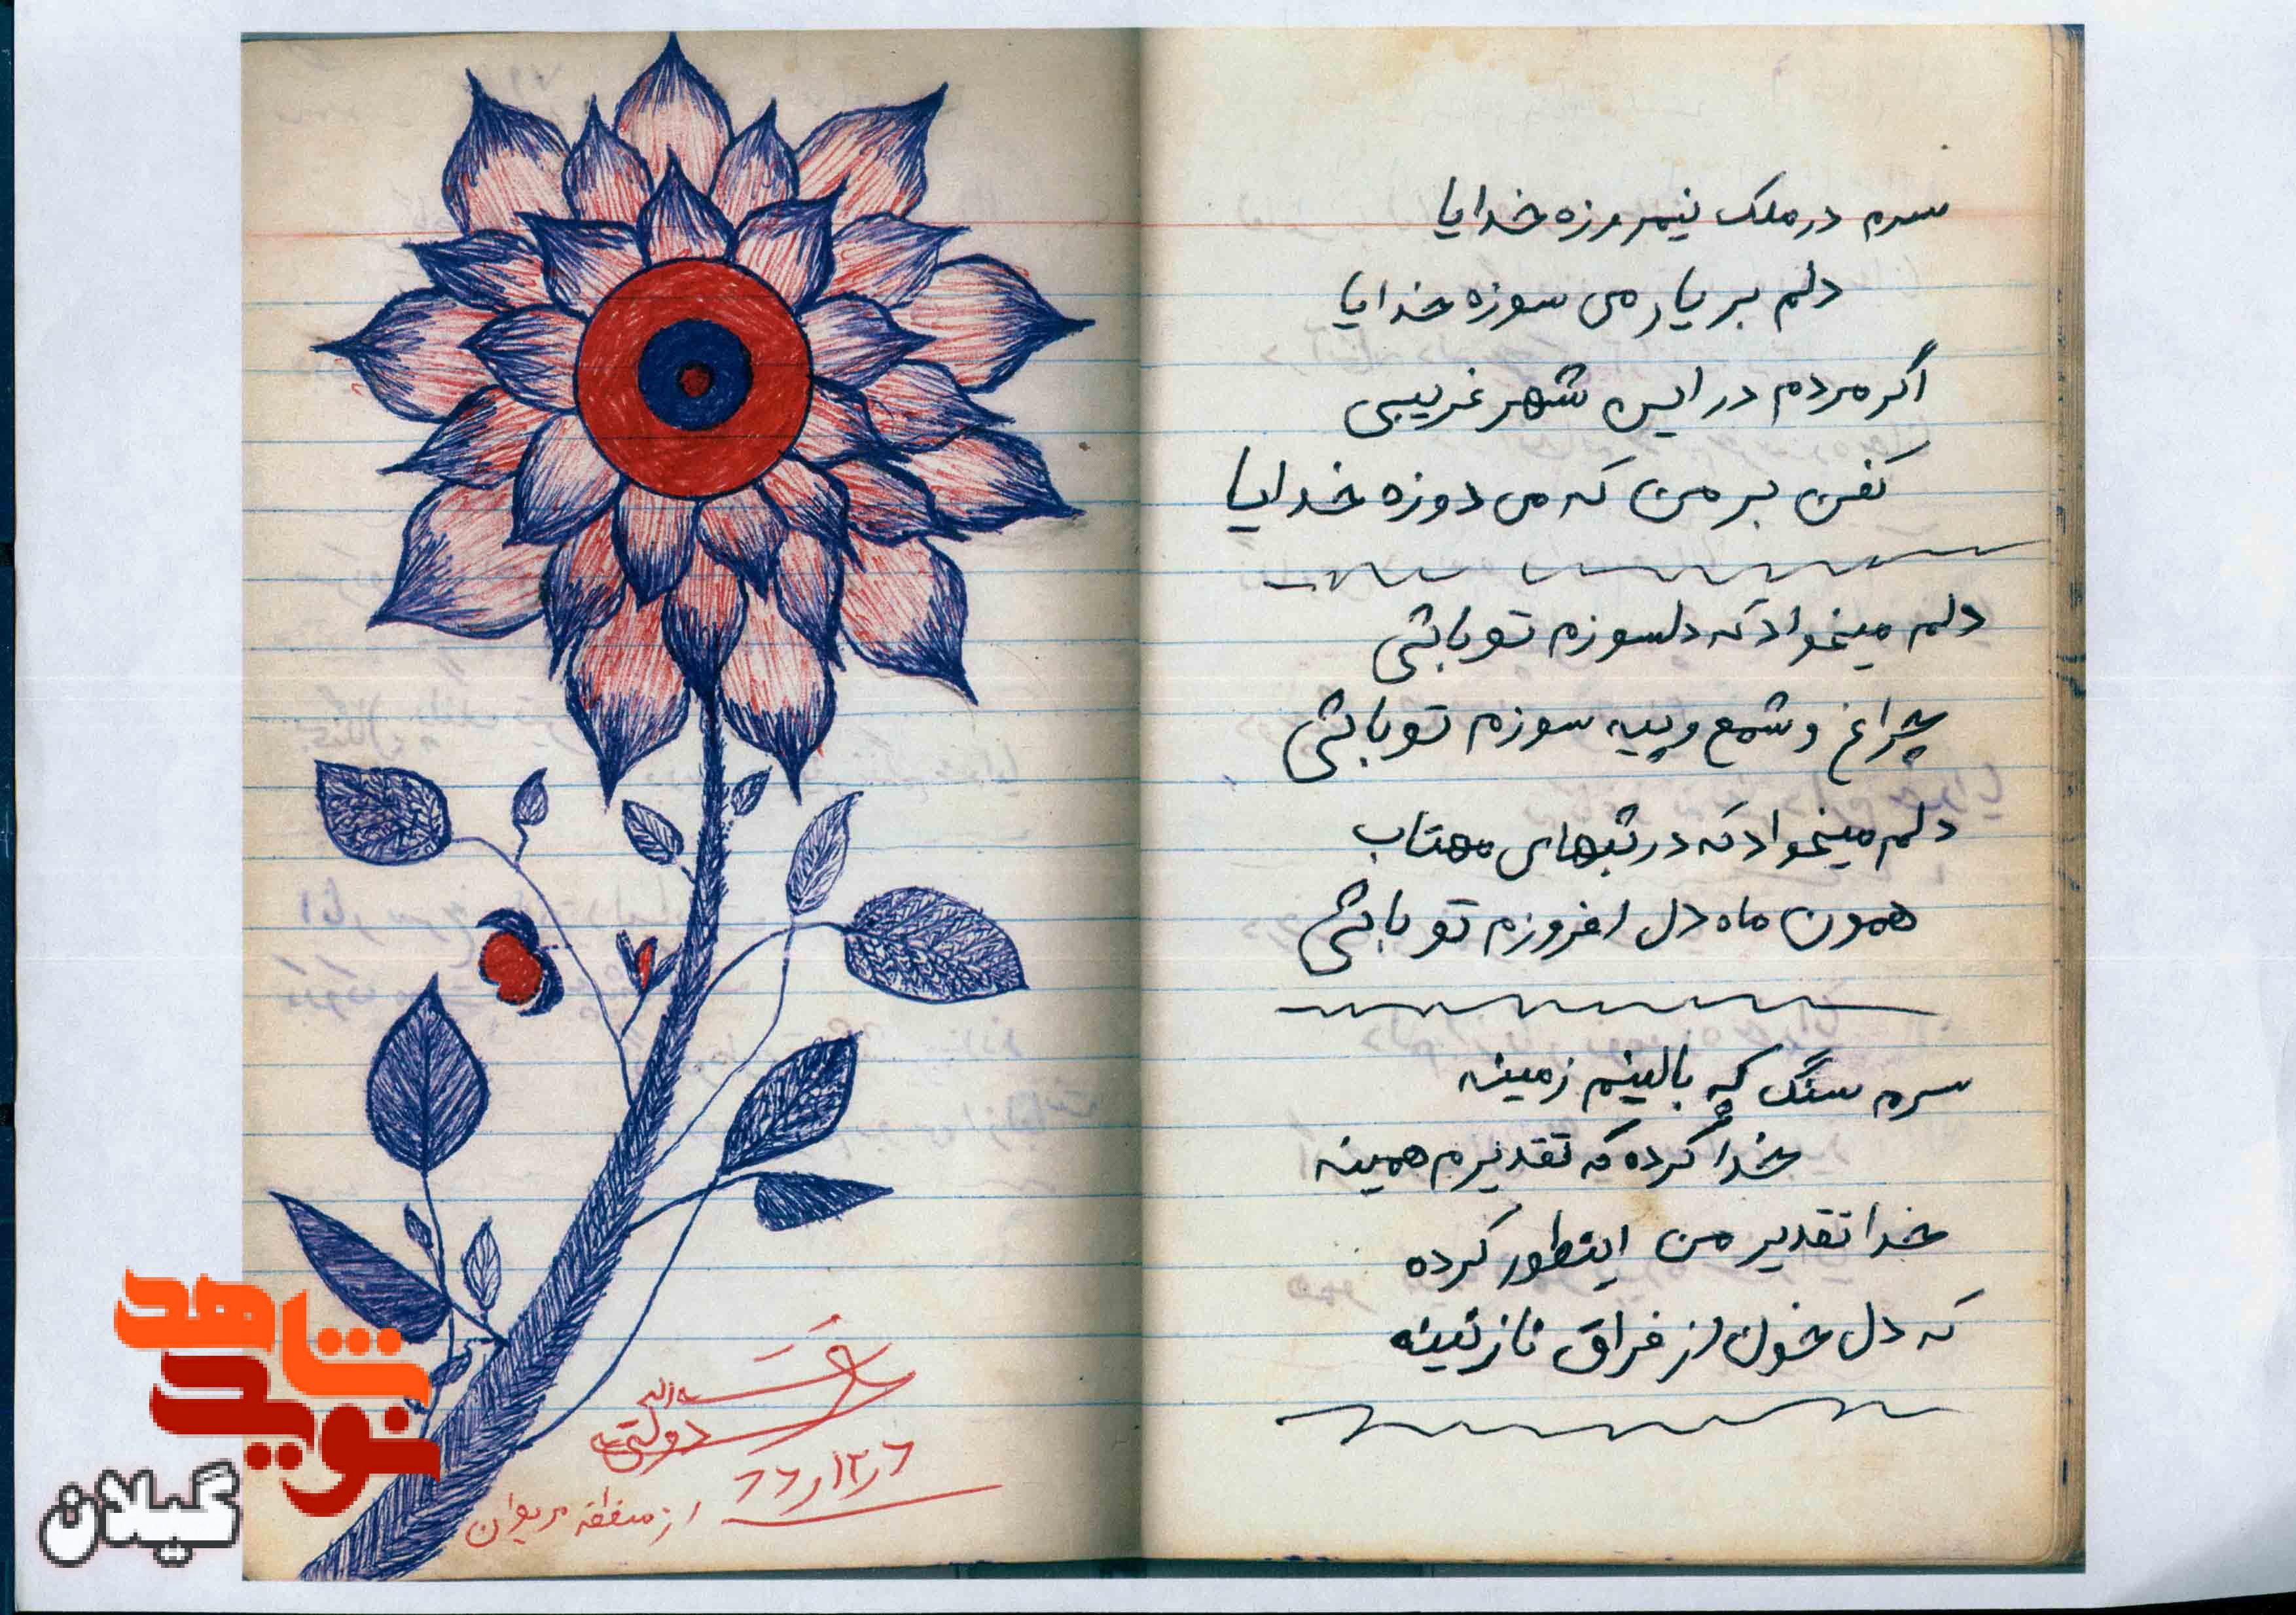 سرم در ملک نیمروزه خدایا
دلم بر یار می سوزه خدایا
اگر مردم در این شهر غریبی
کفن بر من که می دوزه خدایا
دلم میخواد که دلسوزم تو باشی
چراغ و شمع و پیه سوزم تو باشی
دلم میخواد که در شبهای مهتاب
همون ماه دل افروزم تو باشی
سرم سنگ که بالینم زمینه
خدا کرده که تقدیرم همینه
خدا تقدیر من اینطور کرده
که دل خون از فراق نازنینه
دولتی
۶ر۱۲ر۶۶
از منطقه مریوان
شاهد
نوید
گیلان